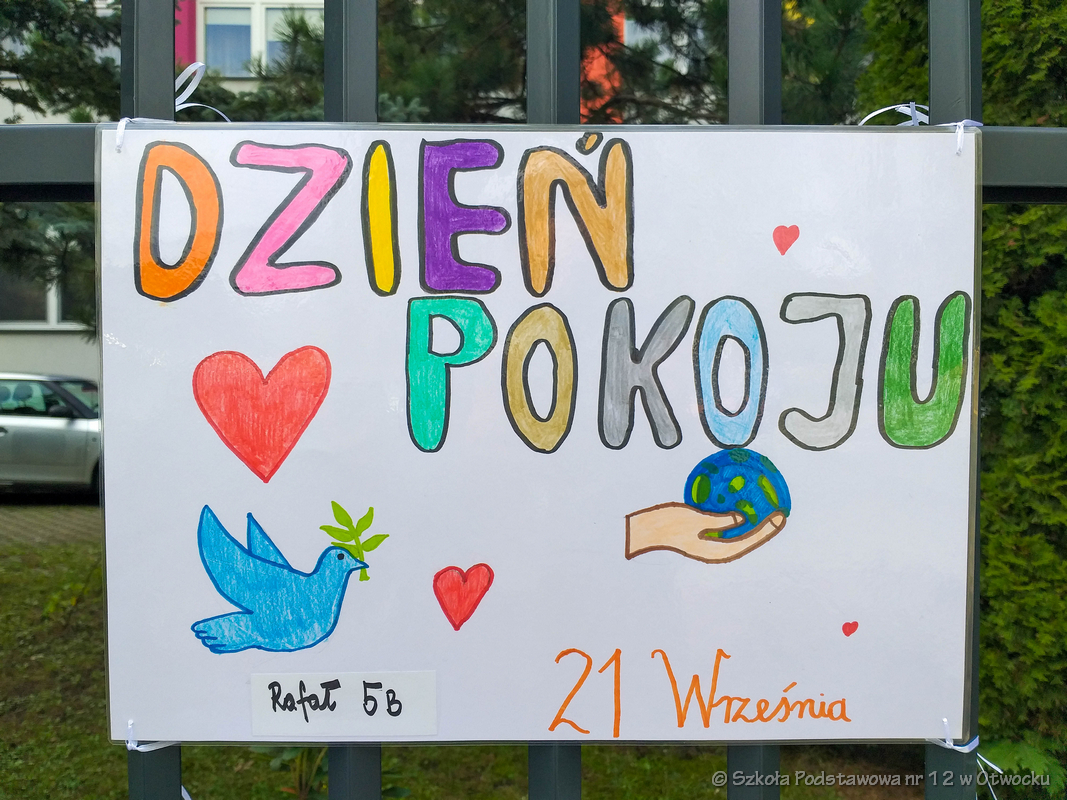 DZIEŃ
POKOJU
21 Września
Rafał 5B
© Szkoła Podstawowa nr 12 w Otwocku